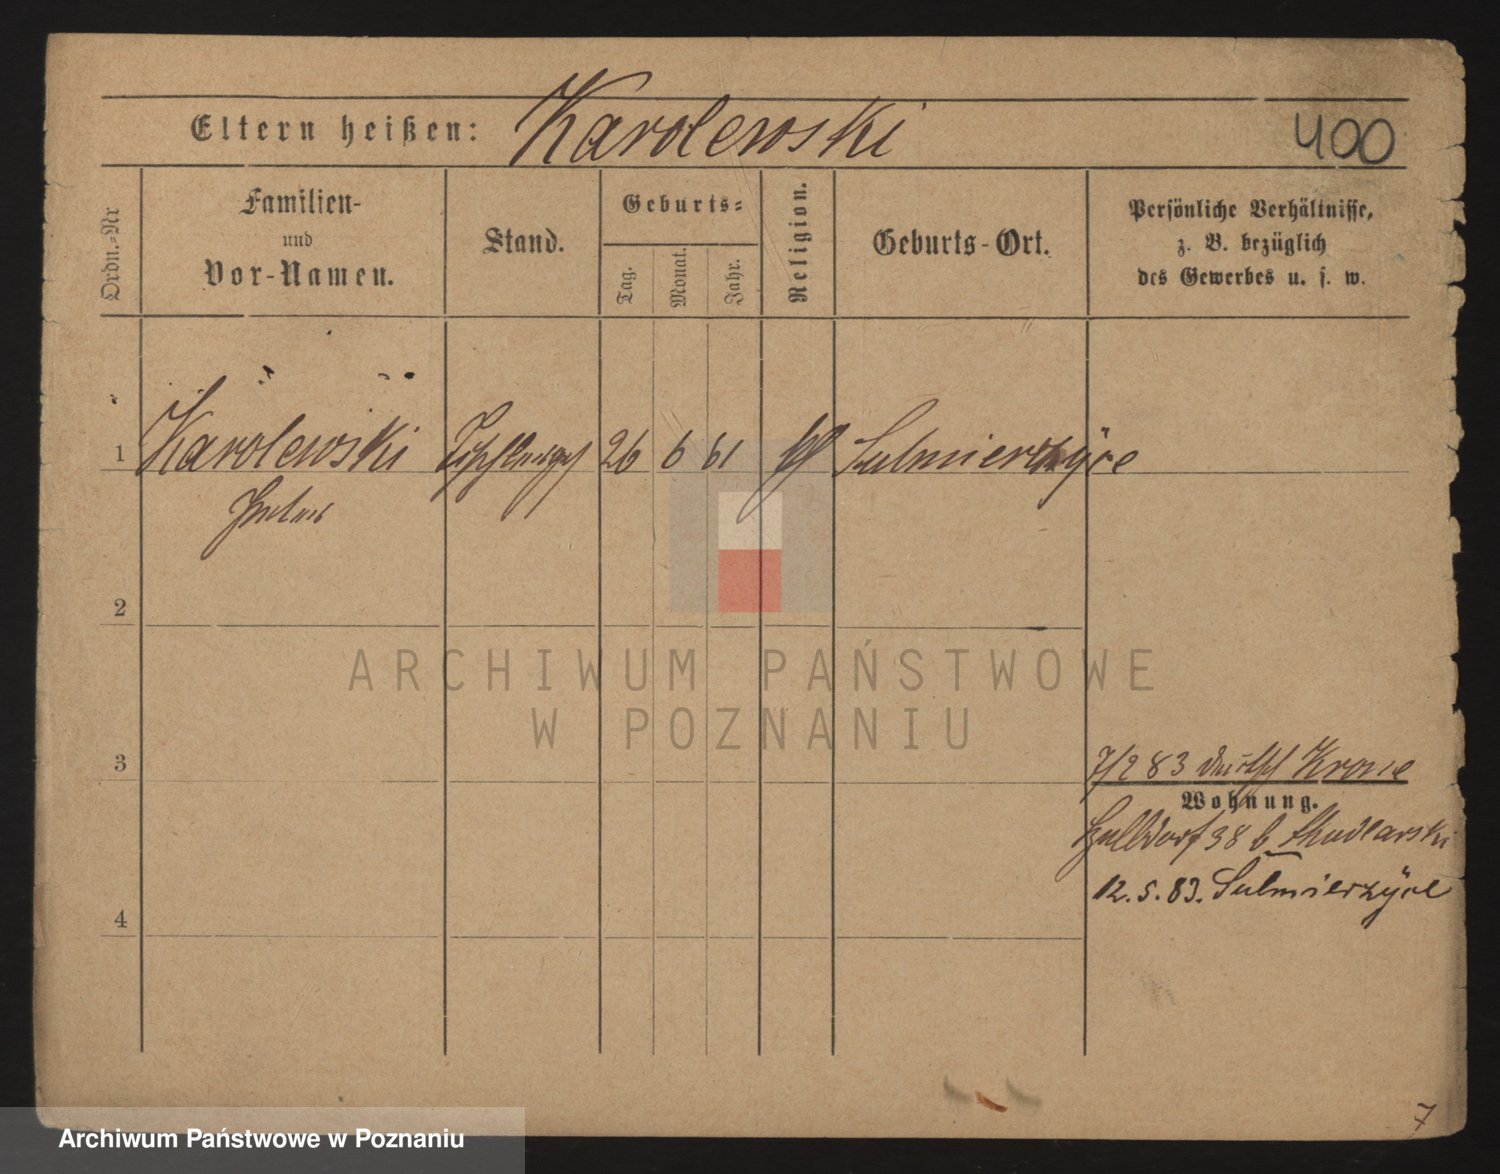 Eltern heißen: Karolewski
400
Ordn.=Nr
Familien-
und
Vor-Namen.
Stand.
Geburts=
Tag.
Monat.
Jahr.
Religion.
Geburts-Ort.
Persönliche Verhältnisse,
z. B. bezüglich
des Gewerbes u. s. w.
1 Karolewski 26 6 61 Sulmierzÿce
2
3
4
7/2 83 Krone
Wohnung.
Halldorf 38 b Skudlarski
12.5.83. Sulmierzÿce
7
ARCHIWUM PAŃSTWOWE
W POZNANIU
Archiwum Państwowe w Poznaniu